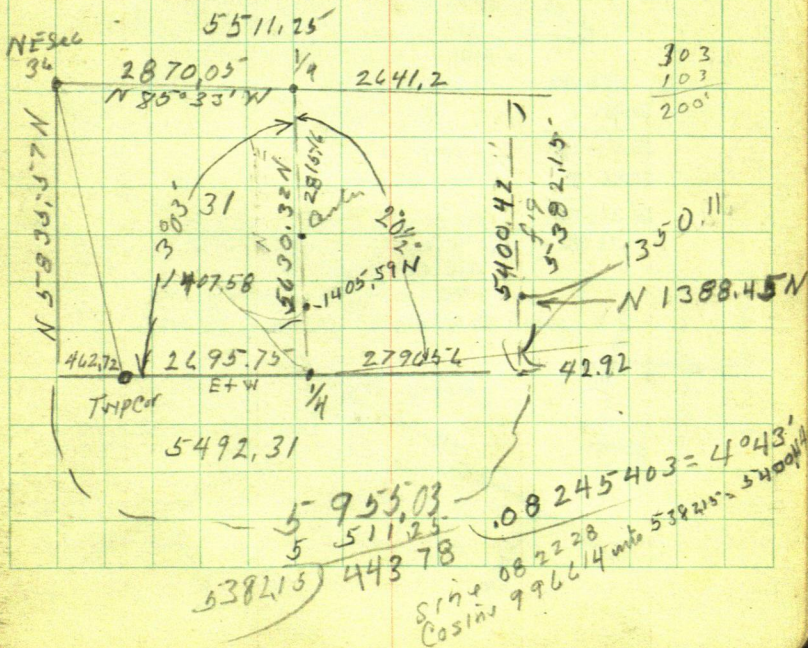 5511.25
NE Sec
36
2870.05
1/4
2641.2
N 85°33' W
303
103
200'
N 5835.57 N
3°03'
31
5630.32 N
2815.16
Center
20 1/2°
5400.42
fig
5382.15
1350.11
1407.58
1405.59 N
N 1388.45 N
462.72
2695.75
E+W
2796.56
42.92
Twp Cor
1/4
5492.31
5 955.03
5 511.25
5382.15 ) 443 78
.08 245403 = 4°43'
Sine 08 22 28
Cosine 996614 into 538215 = 5400.44